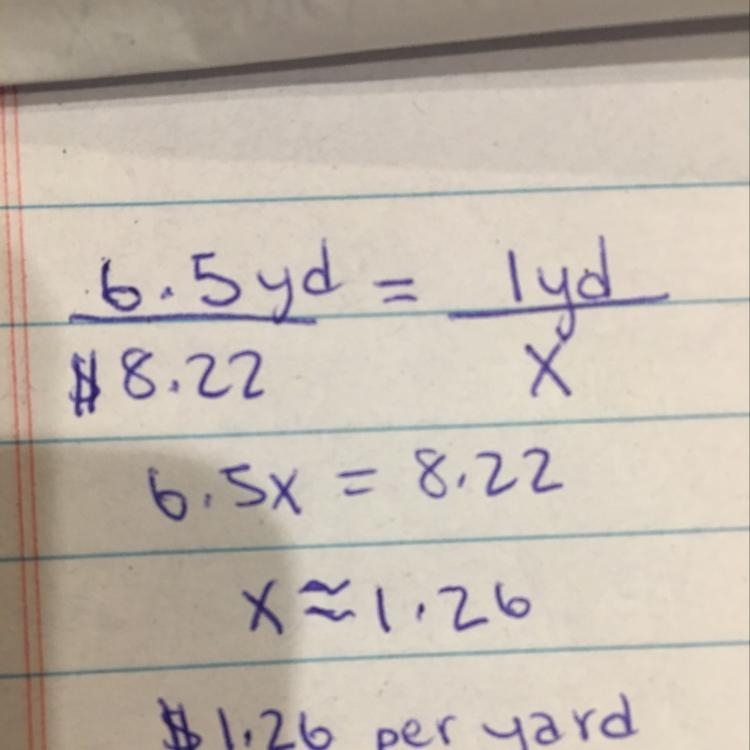 6.5yd = 1yd
$8.22 x
6.5x = 8.22
x ≈ 1.26
$1.26 per yard